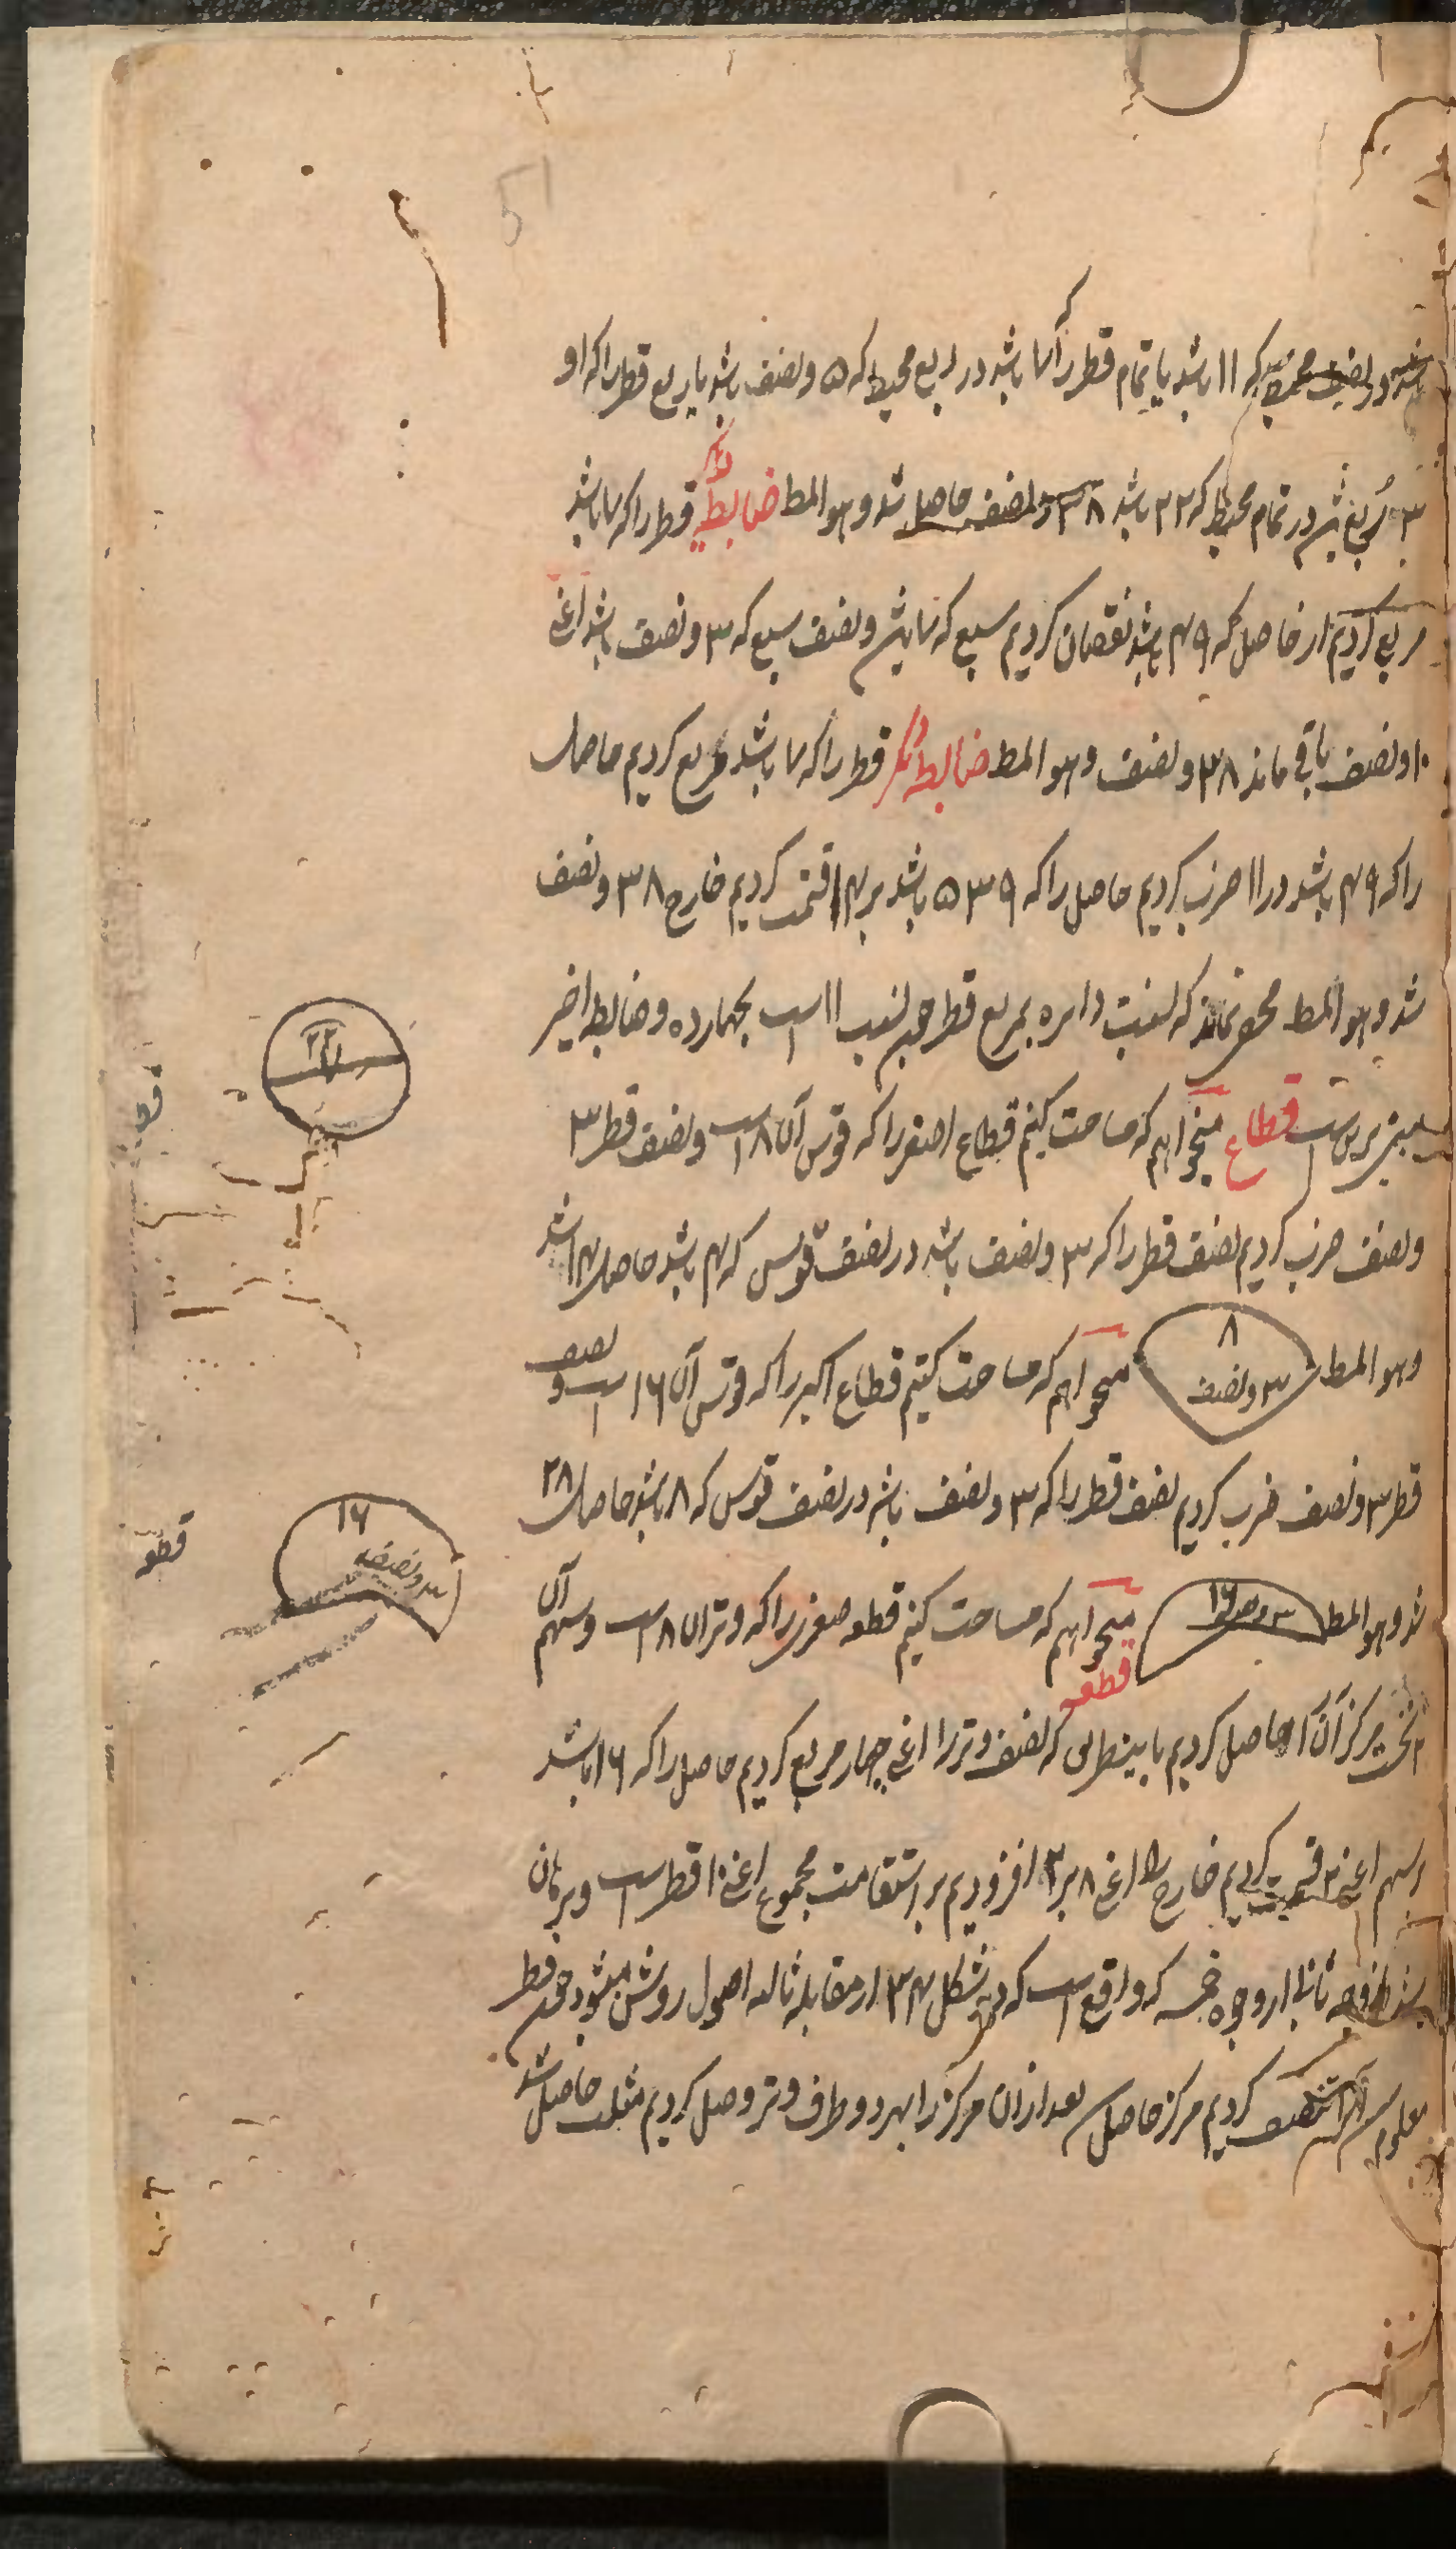 باشد در نصف محیط که ۱۱ باشد یا تمام قطر را که ۷ باشد در ربع محیط که ۵ و نصف باشد یا ربع قطر را که او
۳ ربع باشد در تمام محیط که ۲۲ باشد ۳۸ و نصف حاصل شد و هو المط ضابطه دیگر قطر را که ۷ باشد
مربع کردیم از حاصل که ۴۹ باشد نقصان کردیم سبع که ۷ باشد و نصف سبع که ۳ و نصف باشد اعنی
۱۰ و نصف باقی ماند ۳۸ و نصف و هو المط ضابطه دیگر قطر را که ۷ باشد مربع کردیم حاصل
را که ۴۹ باشد در ۱۱ ضرب کردیم حاصل را که ۵۳۹ باشد بر ۱۴ قسمت کردیم خارج ۳۸ و نصف
شد و هو المط مخفی نماند که نسبت دایره بمربع قطر چون نسبت ۱۱ است بچهارده و ضابطه اخیر
مبنی برین است قطاع میخواهم که مساحت کنیم قطاع اصغر را که قوس آن ۸ است و نصف قطر ۳
و نصف ضرب کردیم نصف قطر را که ۳ و نصف باشد در نصف قوس که ۴ باشد حاصل ۱۴ شد
و هو المط میخواهم که مساحت کنیم قطاع اکبر را که قوس آن ۱۶ است و نصف
۸
۳ و نصف
قطر ۳ و نصف ضرب کردیم نصف قطر را که ۳ و نصف باشد در نصف قوس که ۸ باشد حاصل ۲۸
شد و هو المط میخواهم که مساحت کنیم قطعه صغری را که وتر آن ۸ است و سهم آن
۱۶
۳ و نصف
قطعه
۲ نخست مرکز آن را حاصل کردیم باینطریق که نصف وتر را اعنی چهار مربع کردیم حاصل را که ۱۶ باشد
بر سهم اعنی ۲ قسمت کردیم خارج را اعنی ۸ بر ۲ افزودیم بر استقامت مجموع اعنی ۱۰ قطر است و برهان
ثانیا از وجوه خمسه که واقع است که در شکل ۳۴ از مقاله ثالثه اصول روشن میشود چون قطر
معلوم شد آنرا تنصیف کردیم مرکز حاصل شد بعد از آن مرکز را بهر دو طرف وتر وصل کردیم مثلث حاصل شد
۲۲
۷
۱۶
۳ و نصف
قطعه
51